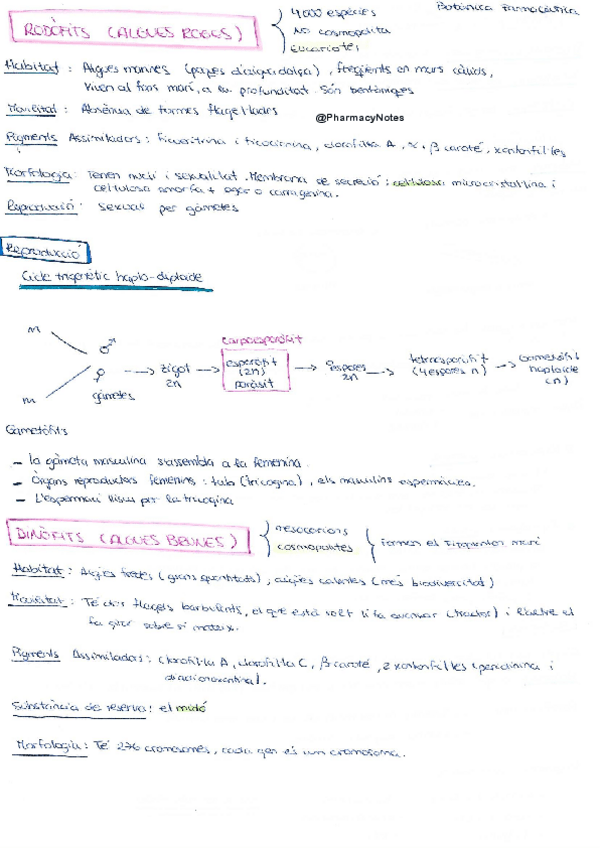 Botànica Farmacèutica
RODÒFITS (ALGUES ROGES)
4000 espècies
No cosmopolita
eucariotes
Hàbitat: Aigues marines (poques d'aigua dolça), freqüents en mars càlids,
viuen al fons marí, a gran profunditat. Són bentòniques
Motilitat: Absència de formes flagel·lades
@PharmacyNotes
Pigments Assimiladors: ficoeritrina i ficocianina, clorofil·la A, α, β carotè, xantofil·les
Morfologia: Tenen nucli i sexualitat. Membrana de secreció: cel·lulosa microcristal·lina i
cel·lulosa amorfa + agar o carragenina.
Reproducció: sexual per gàmetes
Reproducció
Cicle trigenètic haplo-diploide
m
♂
♀
m
gàmetes
zigot
2n
carposporòfit
esporòfit
(2n)
paràsit
espores
2n
tetrasporòfit
(4 espores n)
Gametòfit
haploide
(n)
Gametòfits
- la gàmeta masculina s'assembla a la femenina.
- Òrgans reproductors femenins: tub (tricogina), els masculins
- L'espermaci per la tricogina
DINÒFITS (ALGUES BRUNES)
mesocariotes
cosmopolites
formen el fitoplancton marí
Hàbitat: Aigües fredes (grans quantitats), aigües calentes (més biodiversitat)
Motilitat: Té dos flagels, el que està solt li fa avançar (tractor) i l'altre el
fa girar sobre si mateix.
Pigments Assimiladors: clorofil·la A, clorofil·la C, β carotè, 2 xantofil·les (peridinina i
Substància de reserva: el midó
Morfologia: Té 276 cromosomes, cada gen és un cromosoma.